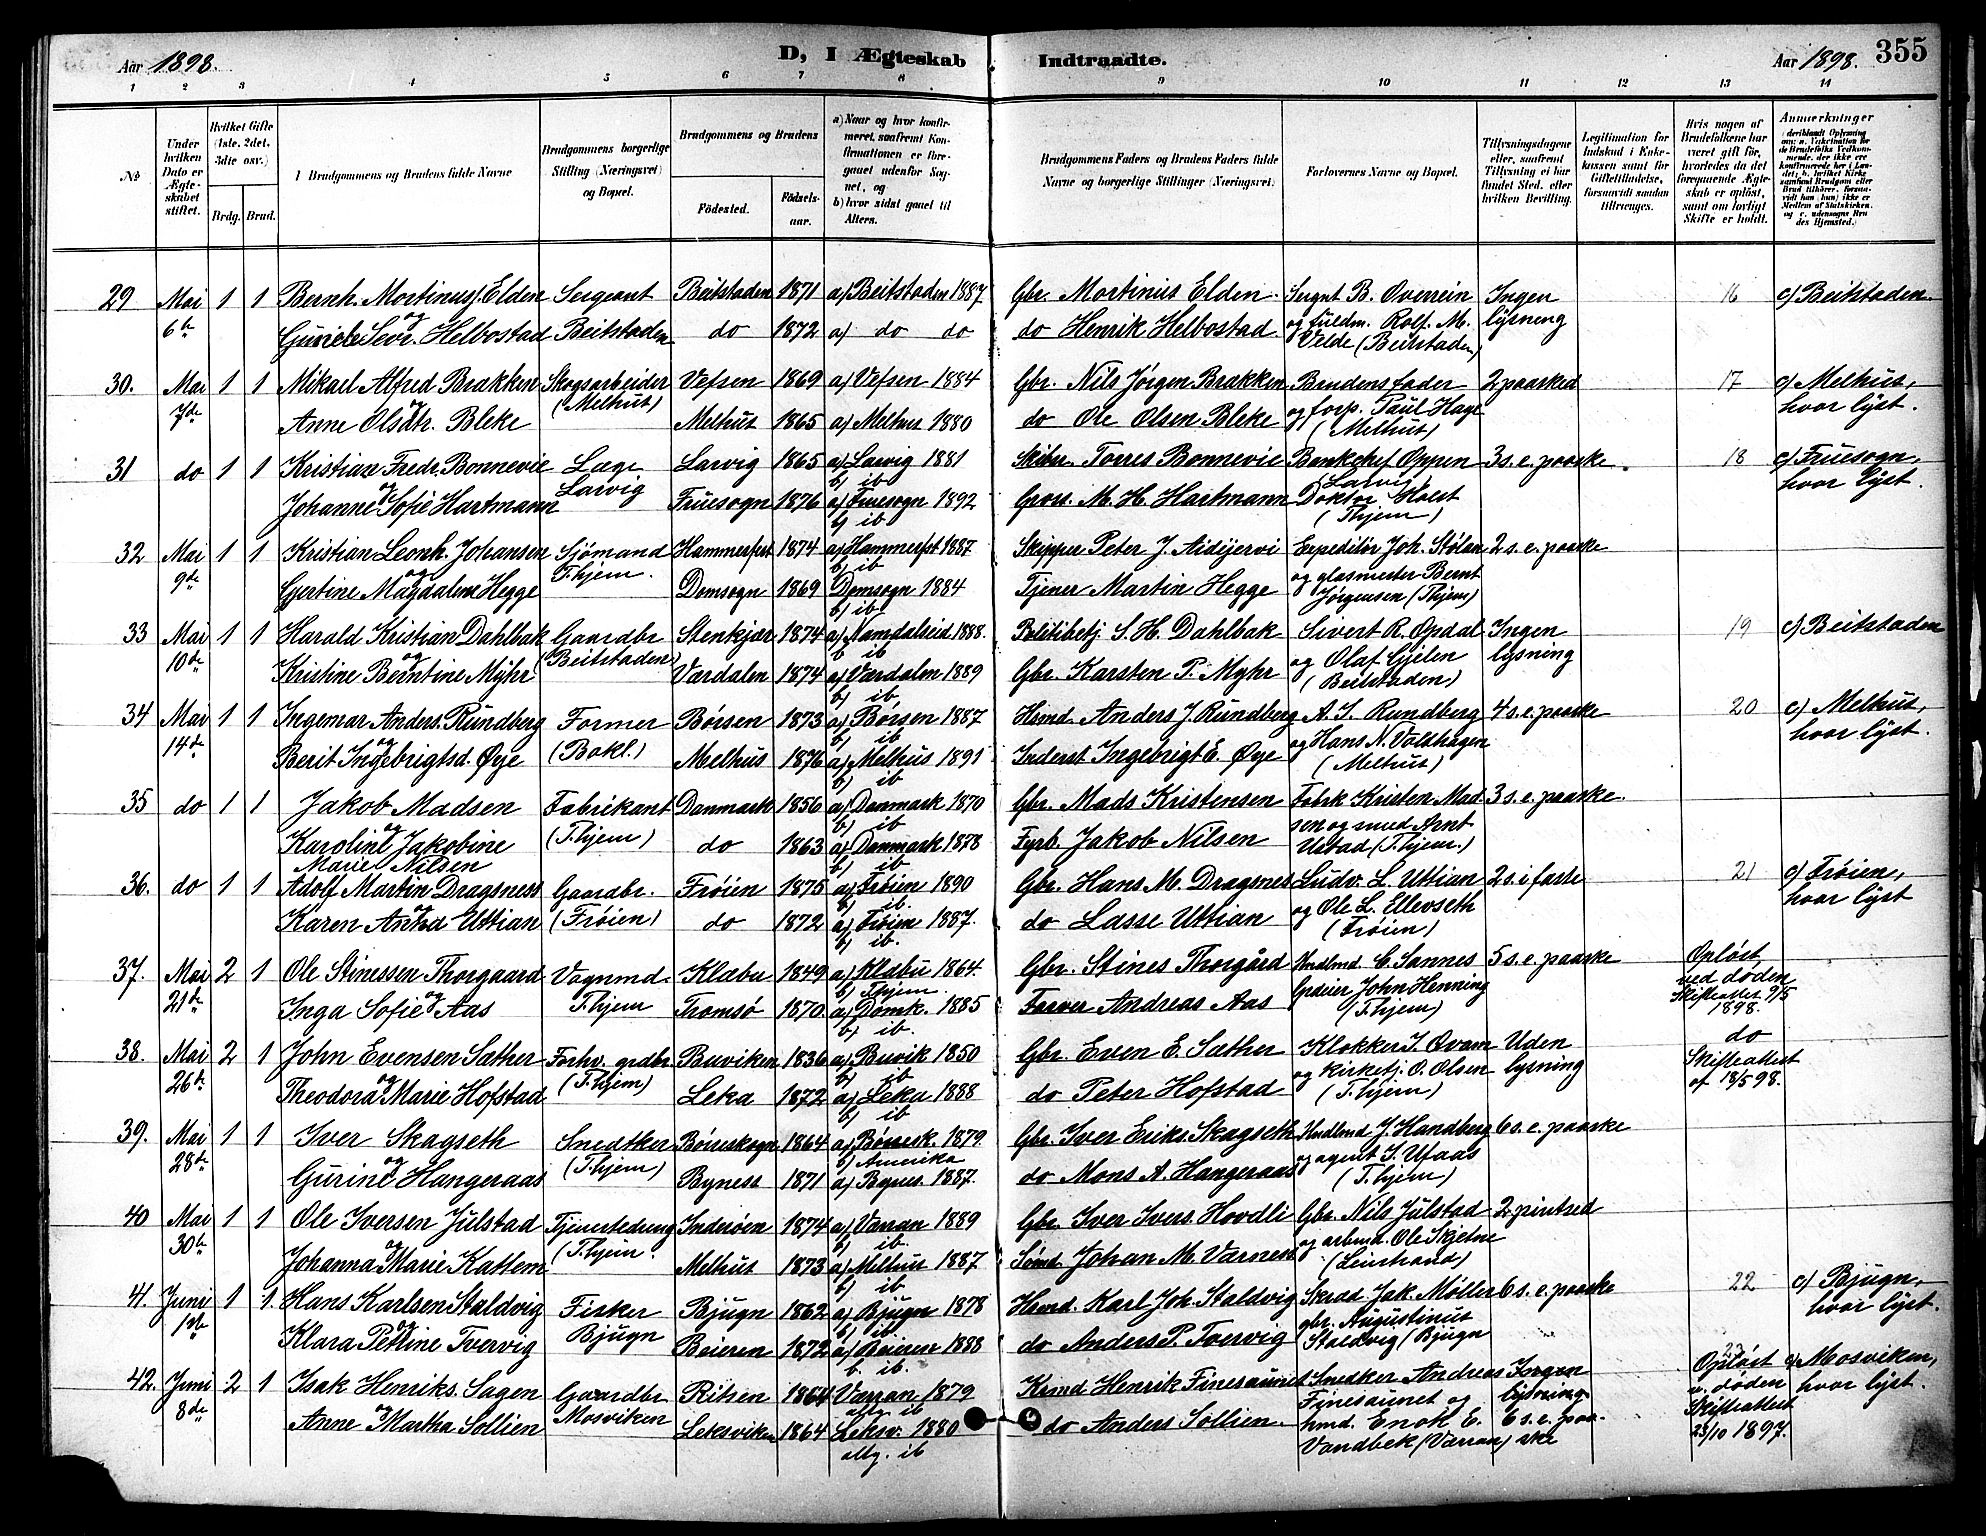 Aar 1898. D, I Ægteskab Indtraadte. Aar 1898. 355
1 2 3 4 5 6 7 8 9 10 11 12 13 14
No
Under hvilken Dato er Ægteskabet stiftet.
Hvilket Gifte (1ste, 2det, 3die osv.)
Brdg. Brud.
Brudgommens og Brudens fulde Navne
Brudgommens borgerlige Stilling (Næringsvei) og Bopæl.
Brudgommens og Brudens
Födested. Födselsaar.
a) Naar og hvor konfirmeret, saafremt Konfirmationen er foregaaet udenfor Sognet, og
b) hvor sidst gaaet til Alters.
Brudgommens Faders og Brudens Faders fulde Navne og borgerlige Stillinger (Næringsvei).
Forlovernes Navne og Bopæl.
Tillysningsdagene eller, saafremt Tillysning ei har fundet Sted, efter hvilken Bevilling.
Legitimation for Indskud i Enkekassen samt for Giftetilladelse, forsaavidt saadan tiltrænges.
Hvis nogen af Brudefolkene har været gift før, hvorledes da det foregaaende Ægteskab er opløst, samt om lovligt Skifte er holdt.
Anmerkninger
29 Mai 1 1 Bernh. Martinus Elden Sergeant Beitstaden 1871 a) Beitstaden 1887 Gbr. Martinus Elden Sergnt B. Overrein Ingen 16 c) Beitstaden.
6te og Helbostad Beitstaden do 1872 a) do do do Henrik Helbostad og fuldm. Rolf. M. lysning
Velde (Beitstaden)
30. Mai 1 1 Mikael Alfred Brækken Skogsarbeider Vefsen 1869 a) Vefsen 1884 Gbr. Nils Jørgen Brækken Brudens fader 2 paasked 17 c) Melhus,
7de og Anne Olsdtr. Bleke (Melhus) Melhus 1865 a) Melhus 1880 do Ole Olsen Bleke og forp. Paul Hage hvor lyst.
(Melhus)
31 do 1 1 Kristian Fredr. Bonnevie Læge Larvig 1865 a) Larvig 1881 Torres Bonnevie Bankchef Oppen 3 s. e. paaske. 18 c) Fruesogn,
og b) ib Larvig hvor lyst.
Johanne Sofie Hartmann Larvig Fruesogn 1876 a) Fruesogn 1892 Gross. M. H. Hartmann Doktor Holst
b) ib (Thjem)
32 Mai 1 1 Kristian Leonh. Johansen Sjömand Hammerfest 1874 a) Hammerfst 1887 Skipper Peter J. Aidijervi Expeditör Joh. Stølan 2 s. e. paaske
9de og T.hjem. b) ib og glasmester Bernt
Gjertine Magdalene Hegge Domsogn 1869 Domsogn 1884 Tjener Martin Hegge Jørgensen (Thjem)
b) ib
33 Mai 1 1 Harald Kristian Dahlbak Gaardbr Stenkjær 1874 a) Namdalseid 1888. Politibetj. S. H. Dahlbak Sivert R. Opdal Ingen 19 c) Beitstaden
10de og (Beitstaden) b ib og Olaf Gjelen lysning
Kristine Berntine Myhr Værdalen 1874 a) Værdalen 1889 Gbr. Karsten P. Myhr (Beitstaden)
b) ib
34 Mai 1 1 Ingemar Anders. Rundberg Former Börsen 1873 a) Börsen 1887 Hsmd. Anders J. Rundberg A. J. Rundberg 4 s. e. paaske 20 c) Melhus,
14de og (Bakl.) b) ib og Hans N. Voldhagen hvor lyst.
Berit Ingebrigtsd. Øye Melhus 1876 a) Melhus 1891 Inderst Ingebrigt E. Øye (Melhus)
b) ib
35 do 1 1 Jakob Madsen Fabrikant Danmark 1856 a) Danmark 1870 Gbr. Mads Kristensen Fabrk Kristen Mad 3 s. e. paaske.
og (T.hjem) b) ib sen og smed Arnt
Karoline Jakobine do 1863 a) Danmark 1878 Fyrb Jakob Nilsen Ustad (T.hjem.)
Marie Nilsen b) ib
36. do 1 1 Adolf Martin Dragsness Gaardbr. Frøien 1875 a) Frøien 1890 Gbr. Hans M. Dragsnes Ludv. L. Uttian 2 s. i faste 21 c) Frøien,
og (Frøien) b) ib. og Ole L. Ellevseth hvor lyst
Karen Anna Uttian do 1872 a) Frøien 1887. do Lasse Uttian (Frøien)
b) ib.
37. Mai 2 1 Ole Stinessen Thorgaard Vognmd. Klæbu 1849 a) Klæbu 1864. Gbr. Stines Thorgård Hndlmd. C. Sannes 5 s. e. paaske Opløst
21de og T.hjem b) Thjem. John Henning ved døden
Inga Sofie Aas Tromsö 1870 a) Domk. 1885 Farver Andreas Aas (T.hjem) Skifteattet 9/5 1898.
b) ib.
38. Mai 2 1 John Evensen Sæther Forhv. grdbr Buviken 1836 a) Buvik 1850 Gbr. Even E. Sæther Klokker I. Qvam Uden do
26te og (T.hjem) b) ib og kirketj. O. Olsen lysning Skifteattest
Theodora Marie Hofstad Leka 1872 a) Leka 1888 do Peter Hofstad (T.hjem) af 18/5 98.
b) ib
39. Mai 1 1 Iver Skagseth Snedker Börseskogn 1864 a) Börsesk. 1879. Gbr. Iver Eriks. Skagseth Hndlmd J. Handberg 6 s. e. paaske
28de og (T.hjem) b) Amerika og agent S. Utaas
Gurine Hangeraas Byness 1871 a) Bynes. 1887. do Mons A. Hangeraas (T.hjem)
40 Mai 1 1 Ole Iversen Julstad Tjenerledung Inderøen 1874 a) Varran 1889 Gbr. Iver Ivers. Hovdli Gbr. Nils Julstad 2 pintsed
30te og (T.hjem. b) ib. og arbmd. Ole Skjetne
Johanna Marie Kattem Melhus 1873 a) Melhus 1887 Sömd Johan M. Varness (Leinstrand)
b) ib
41. Juni 1 1. Hans Karlsen Staldvig Fisker Bjugn 1862 a) Bjugn 1878 Hsmd. Karl Joh. Staldvig Skræd Jak. Møller 6 s. e. paaske 22 c) Bjugn,
1ste og Bjugn b) ib gbr. Augustinus hvor lyst.
Klara Petrine Tvervig Beieren 1872 a) Beieren 1888 do Anders P. Tvervig Staldvig (Bjugn
b. ib. 23
42. Juni 2 1 Isak Henriks. Sagen Gaardbr Ritsen 1864 Varran 1879 Henrik Finesaunet Snedker Andreas Ingen Opløst c) Mosviken,
8de og Mosviken altg. ib Finesaunet og lysning. v. døden hvor lyst.
Anne Martha Sollien Leksviken 1864 Leksv. 1880 do Anders Sollien. hmd. Enok E. 6 s. e. paa- Skifteattest
altg. ib Vandbek (Varran) ske 23/10 1897.